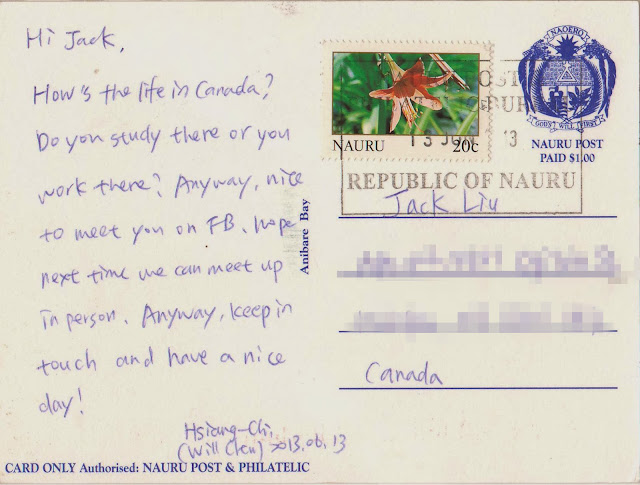 Hi Jack,
How's the life in Canada?
Do you study there or you
work there? Anyway, nice
to meet you on FB. hope
next time we can meet up
in person. Anyway, keep in
touch and have a nice
day!
Hsiang-Chi,
(Will Chen) 2013.06.13
CARD ONLY Authorised: NAURU POST & PHILATELIC
Anibare Bay
NAURU 20c
13 JUN 13
REPUBLIC OF NAURU
NAOERO
GOD'S WILL FIRST
NAURU POST
PAID $1.00
Jack Liu
Canada